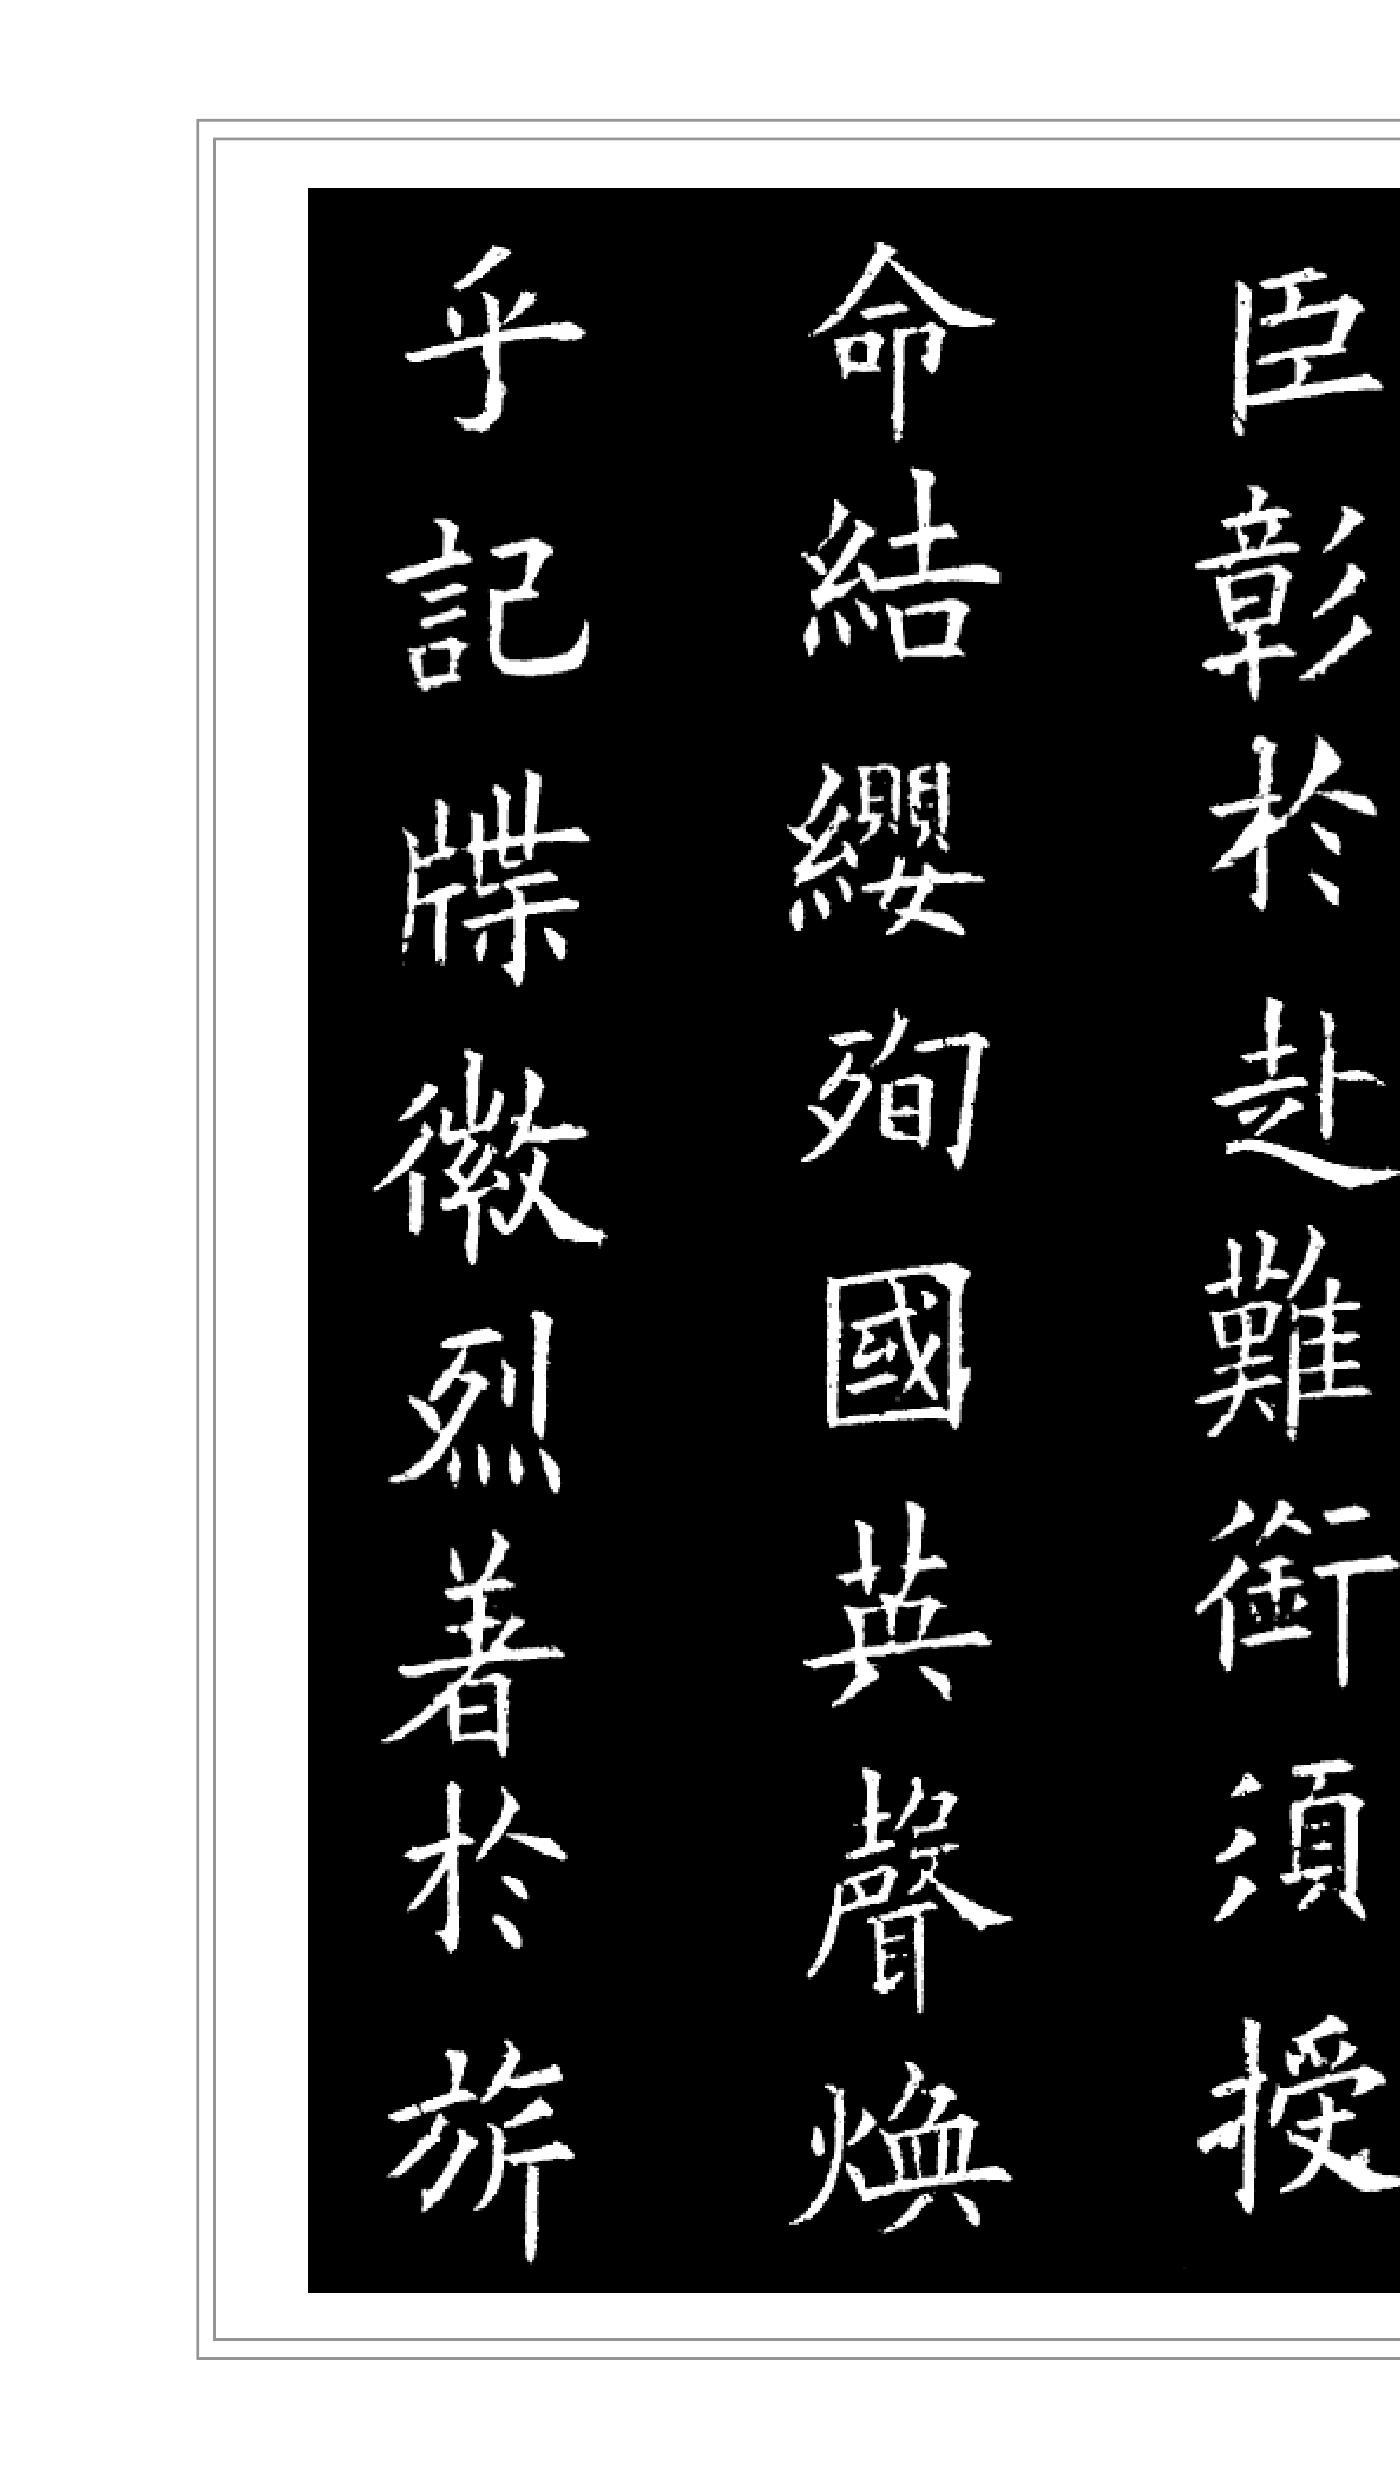 臣彰於赴難銜須授
命結纓殉國英聲煥
乎記牒徽烈著於旂